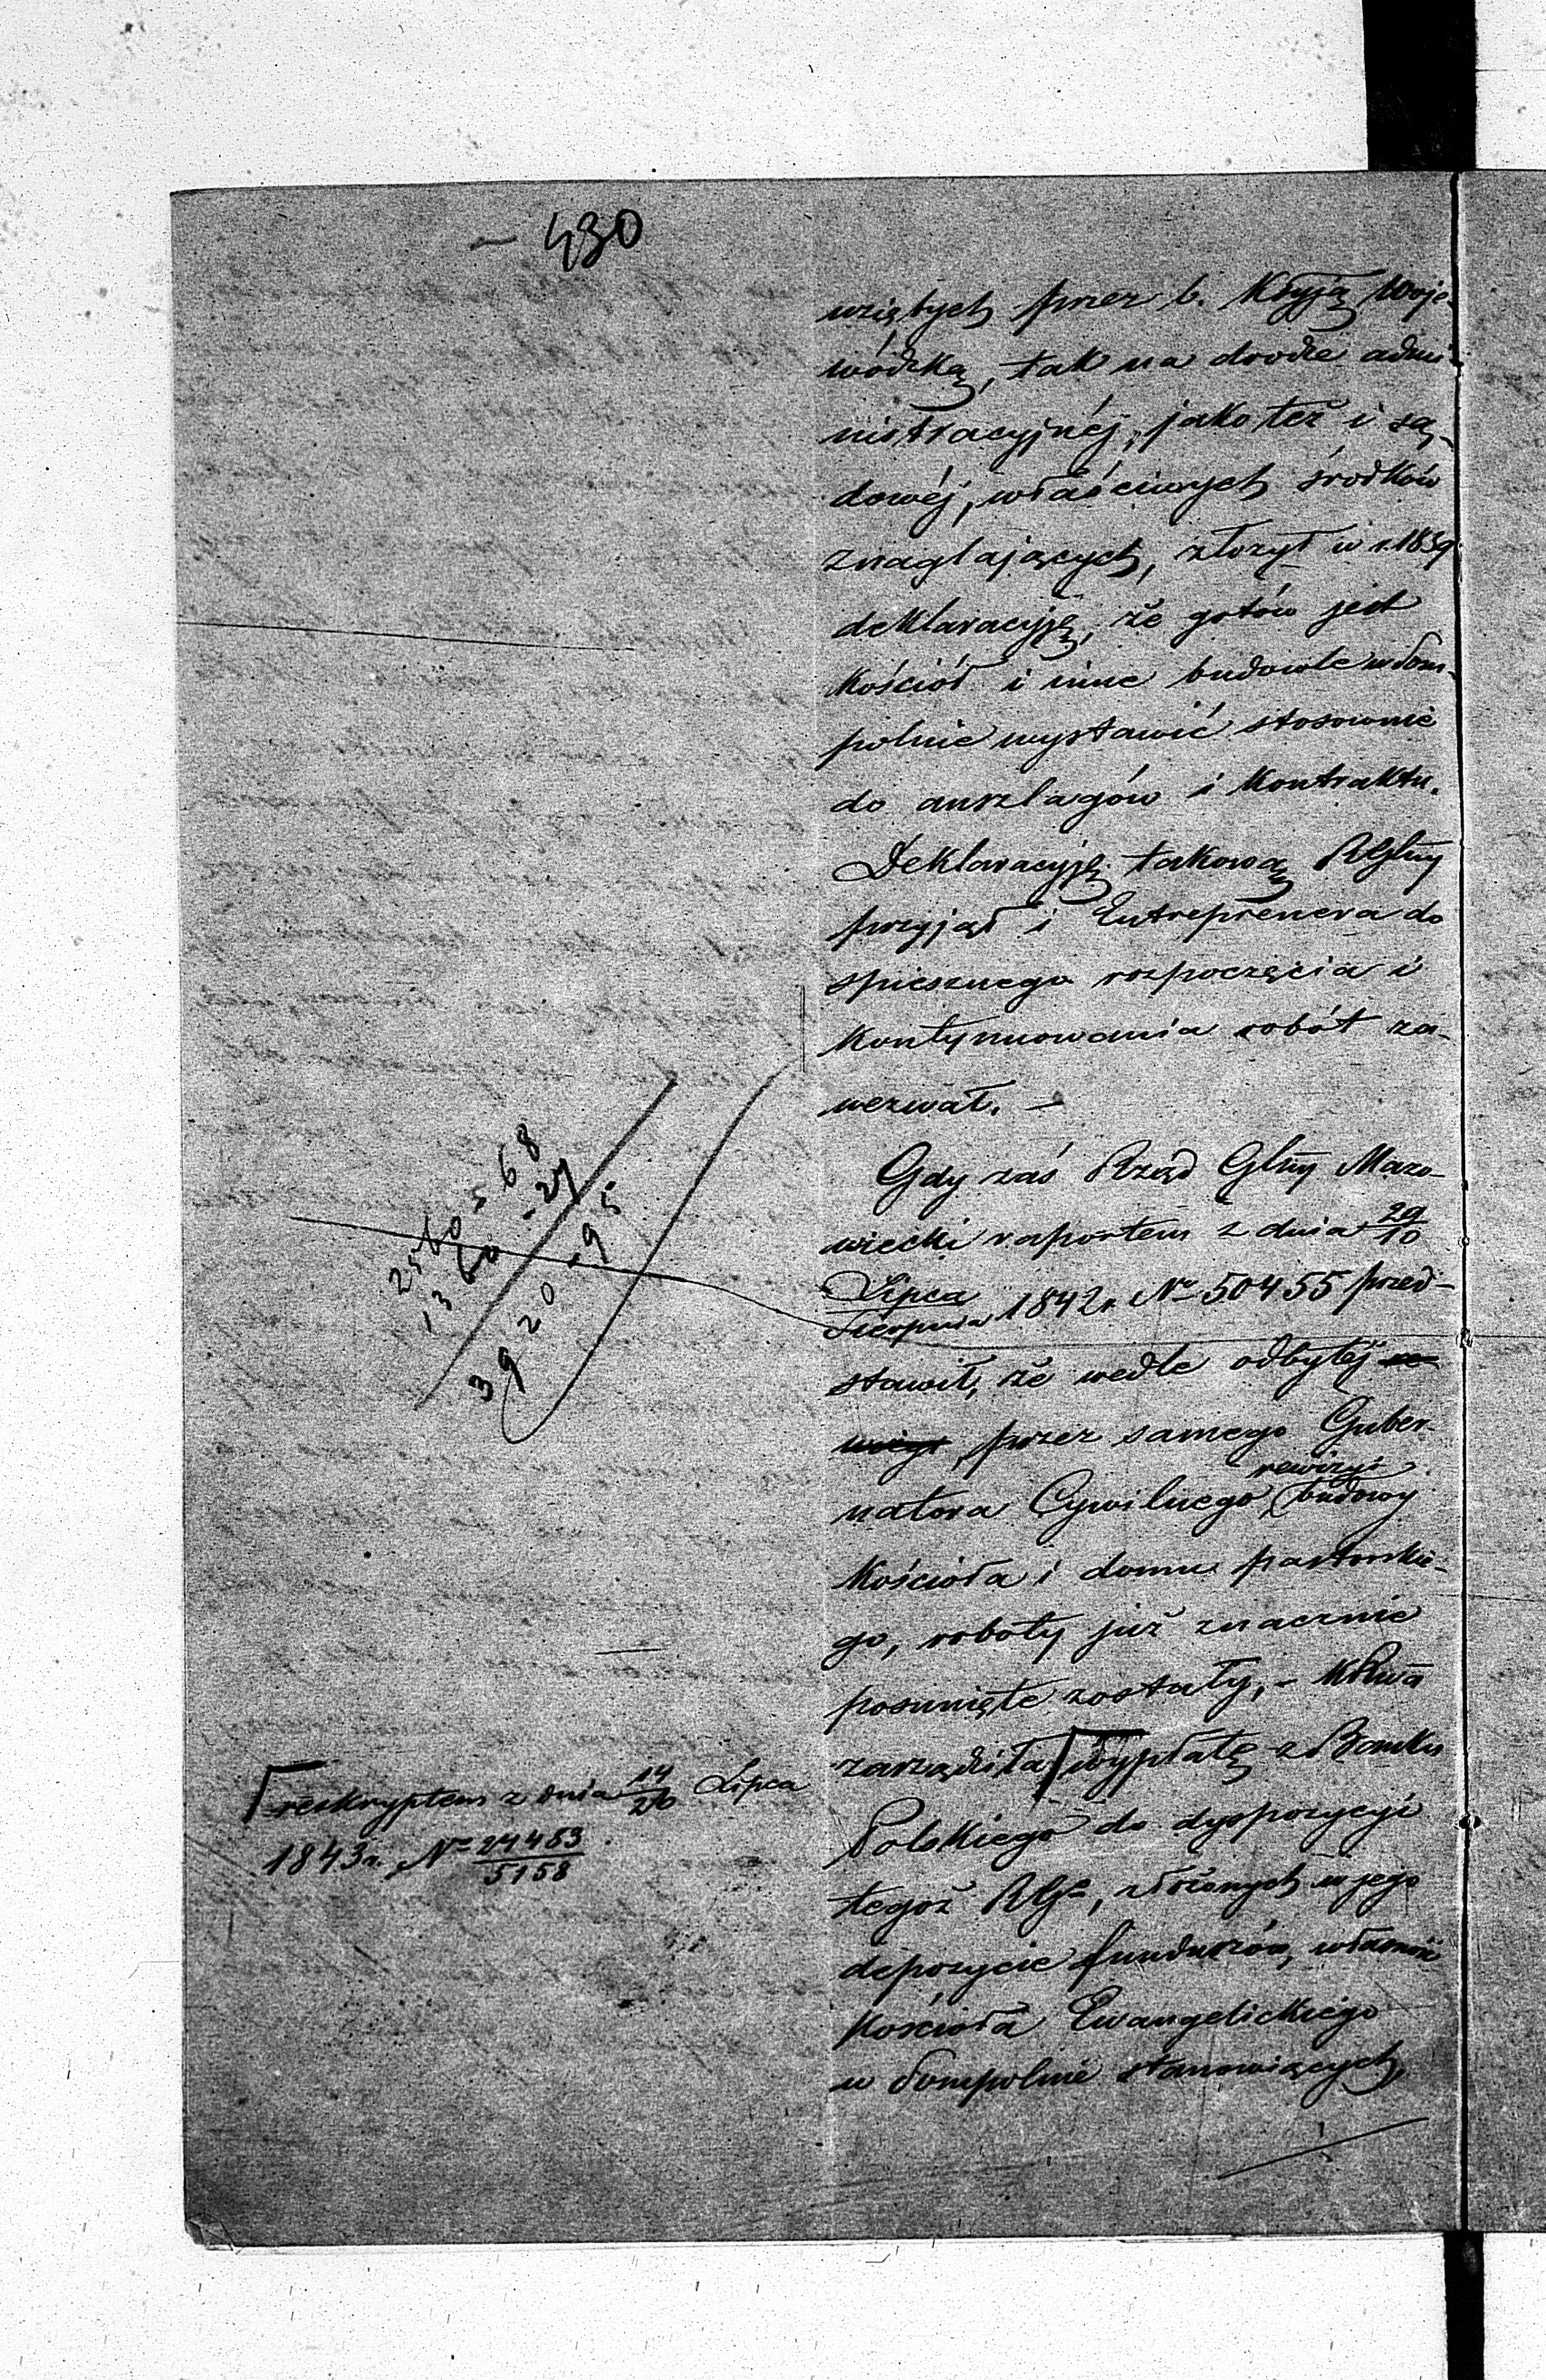 – 430
wziętych przez b. Kssyją Woje-
wódzką, tak na drodze admi
nistracyjnéj, jako też i są-
dowéj, właściwych środków
znaglających, złożył w r. 1839
deklaracyję, że gotów jest
Kościół i inne budowle w Som-
polnie wystawić stosownie
do anszlagów i Kontraktu.
Deklaracyję takową RGlny
przyjął i Entreprenera do
spiesznego rozpoczęcia i
Kontynuowania robót za-
wezwał. –
Gdy zaś Rząd Glny Mazo-
wiecki raportem z dnia 29/10
Lipca/Sierpnia 1842 r. No 50455 przed-
stawił, że wedle odbytéj
przez samego Guber-
natora Cywilnego rewizyi budowy
Kościoła i domu pastorskie-
go, roboty już znacznie
posunięte zostały, – KRwa
zarządziła ⌈wypłatę z Banku
Polskiego do dyspozycyi
tegoż RGo, złożonych w jego
depozycie funduszów, własność
Kościoła Ewangelickiego
w Sompolnie stanowiących,
⌈reskryptem z dnia 14/26 Lipca
1843 r. No 24483/5158.
2560 – 68
1360 – 27
3920 – 95